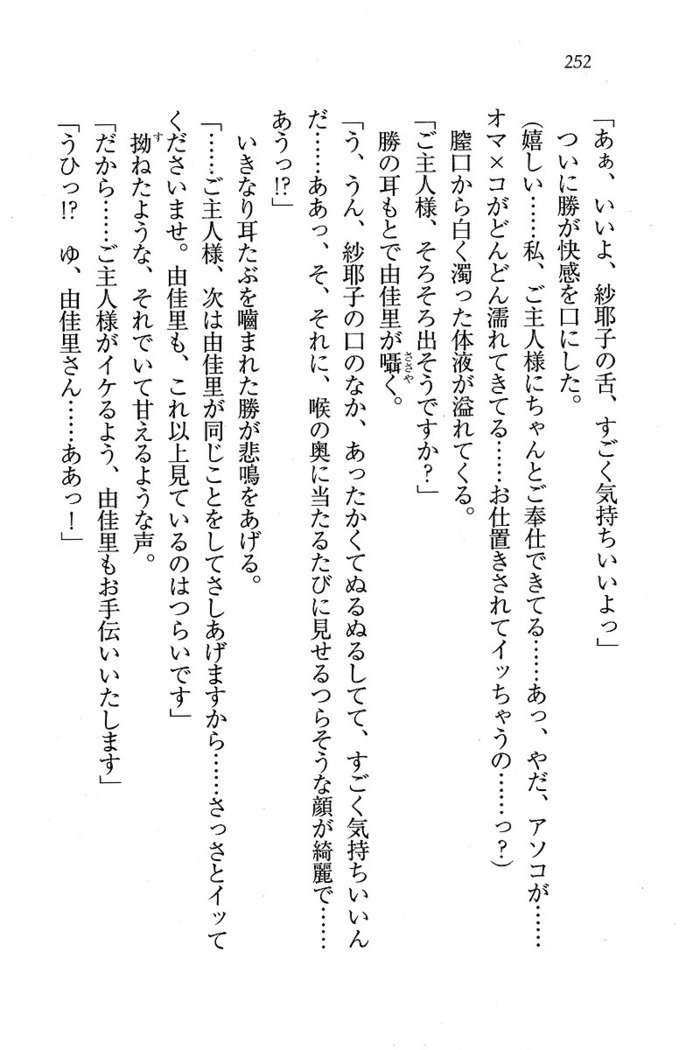 252
「あぁ、いいよ、紗耶子の舌、すごく気持ちいいよっ」
ついに勝が快感を口にした。
(嬉しい……私、ご主人様にちゃんとご奉仕できてる……あっ、やだ、アソコが……
オマ×コがどんどん濡れてきてる……お仕置きされてイッちゃうの……っ？)
膣口から白く濁った体液が溢れてくる。
「ご主人様、そろそろ出そうですか？」
勝の耳もとで由佳里が囁く。
「う、うん、紗耶子の口のなか、あったかくてぬるぬるしてて、すごく気持ちいいん
だ……ああっ、そ、それに、喉の奥に当たるたびに見せるつらそうな顔が綺麗で……
あうっ!?」
いきなり耳たぶを嚙まれた勝が悲鳴をあげる。
「……ご主人様、次は由佳里が同じことをしてさしあげますから……さっさとイッて
くださいませ。由佳里も、これ以上見ているのはつらいです」
拗ねたような、それでいて甘えるような声。
「だから……ご主人様がイケるよう、由佳里もお手伝いいたします」
「うひっ!?　ゆ、由佳里さん……ああっ！」